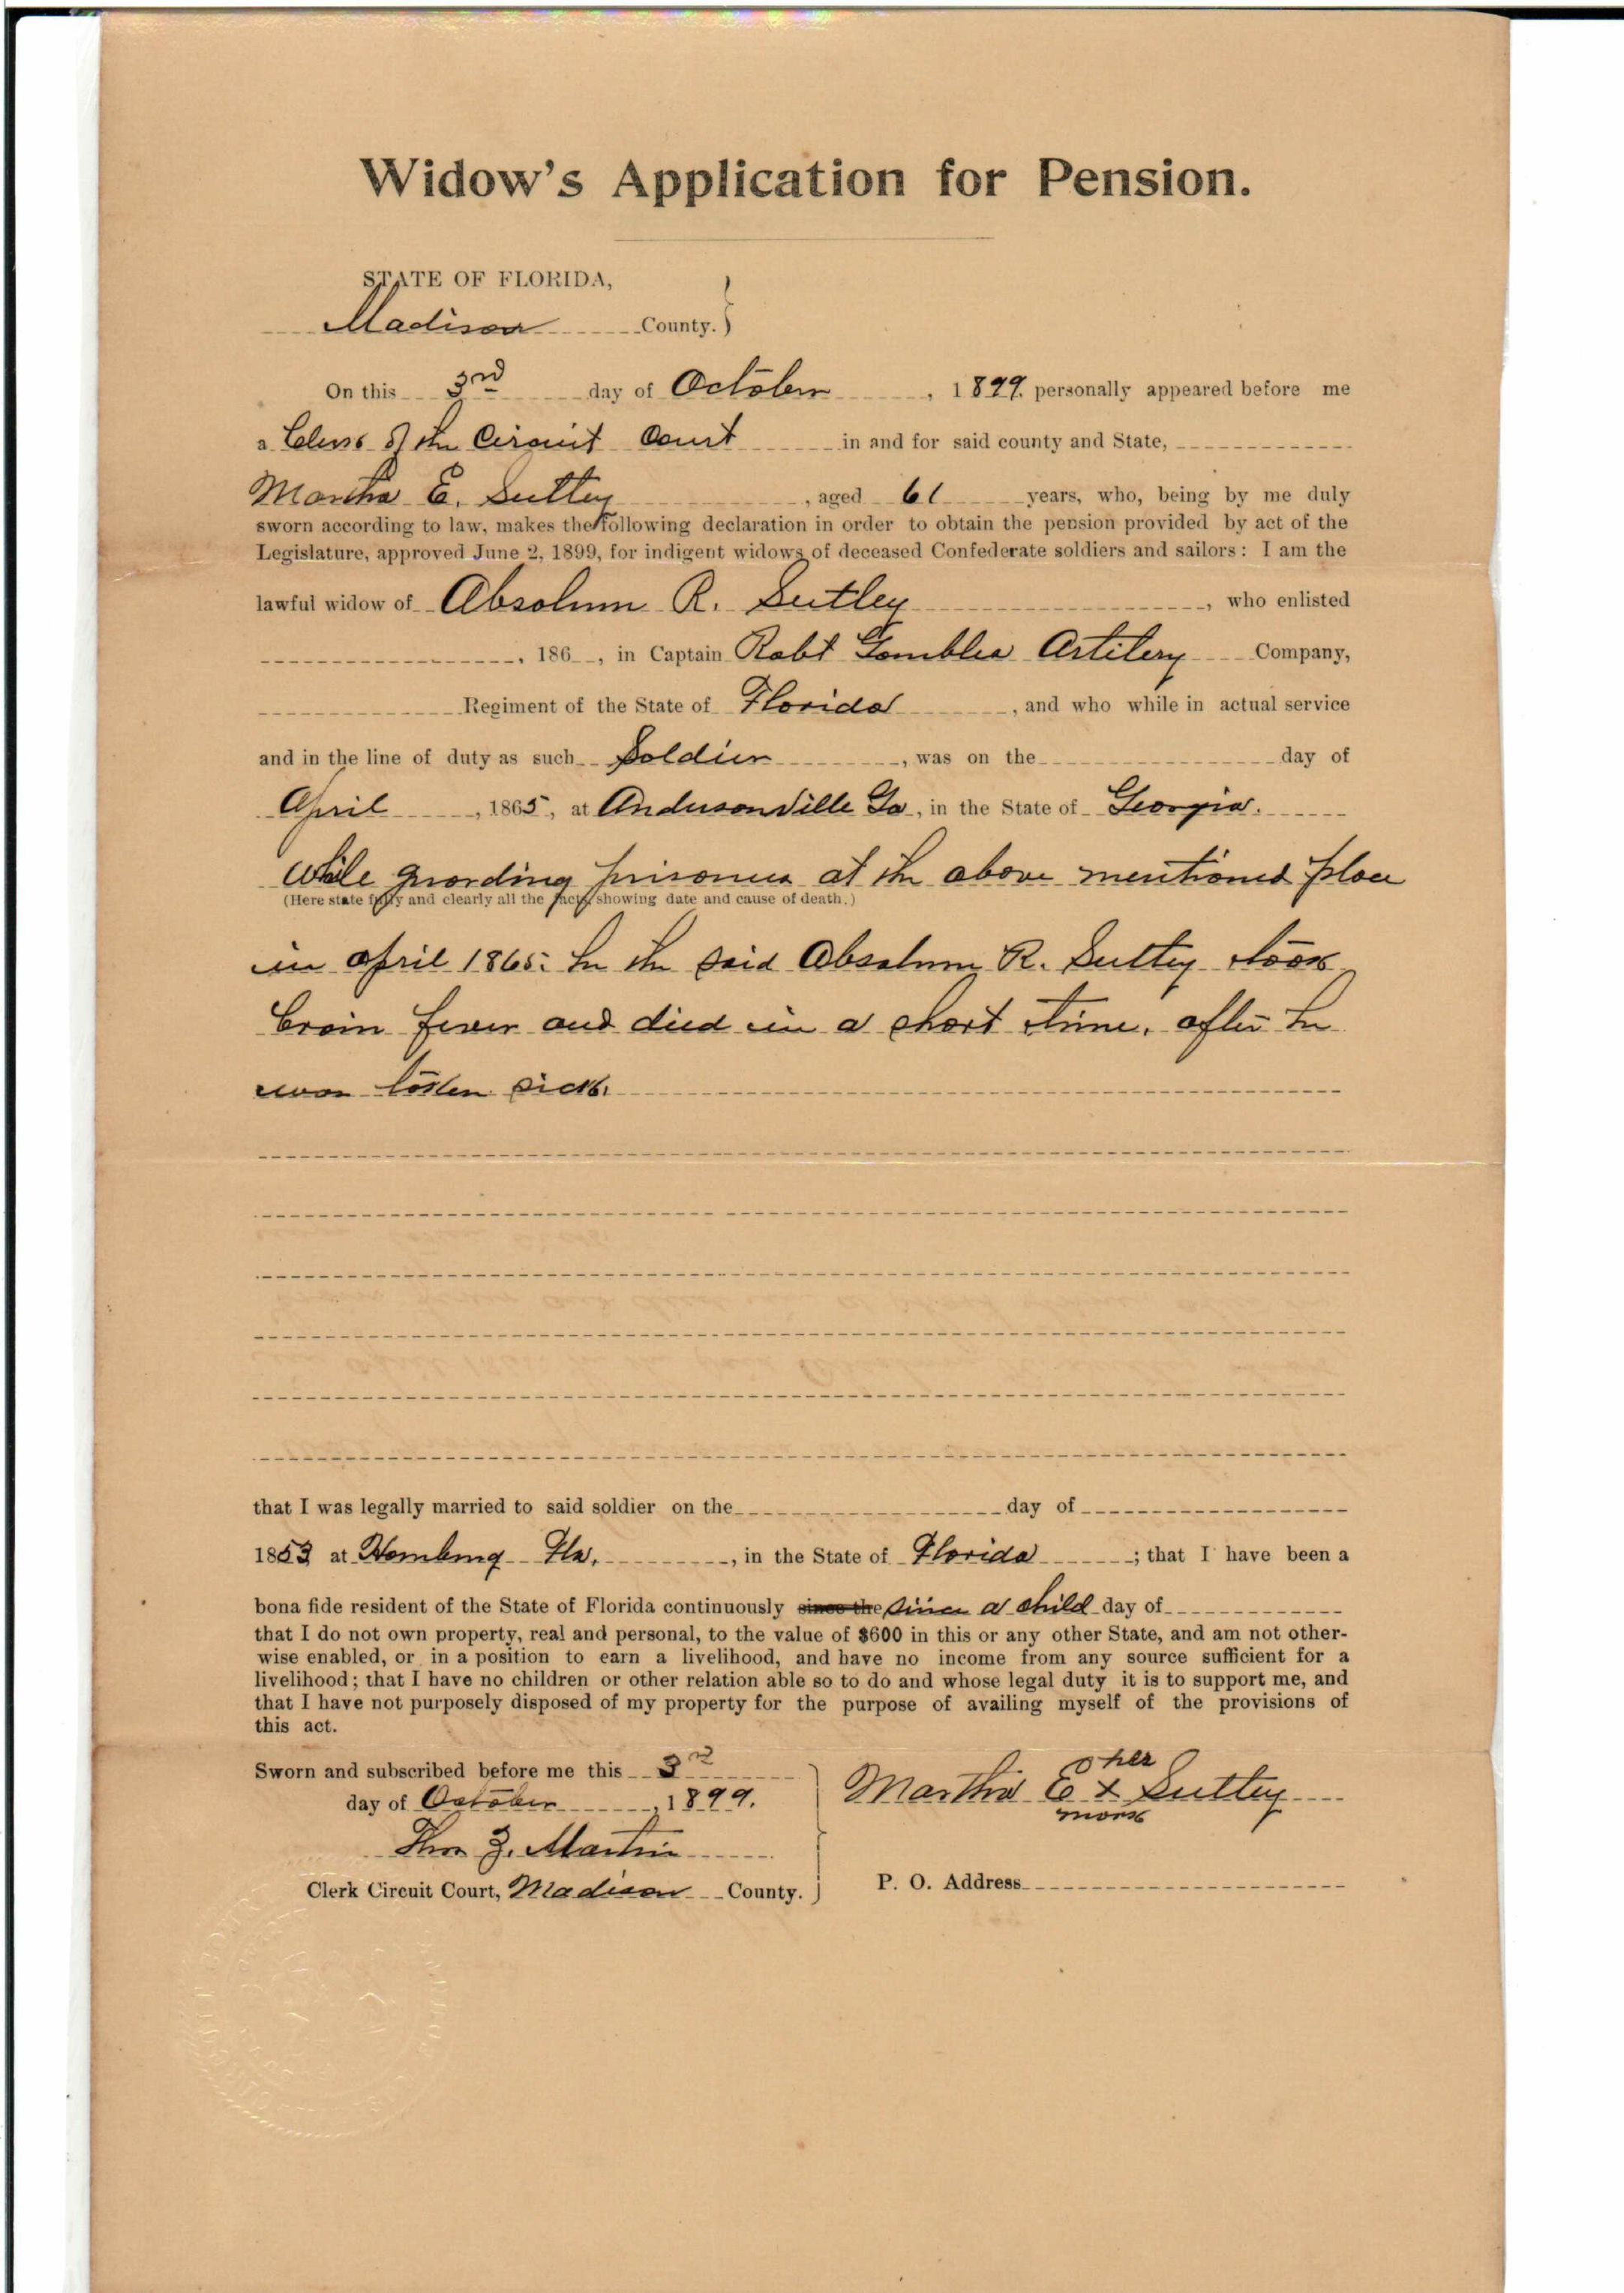 Widow's Application for Pension.
STATE OF FLORIDA,
Madison County. }
On this 3rd day of October, 1899, personally appeared before me
a Clerk of the Circuit Court in and for said county and State,
Martha E. Suttey, aged 61 years, who, being by me duly
sworn according to law, makes the following declaration in order to obtain the pension provided by act of the
Legislature, approved June 2, 1899, for indigent widows of deceased Confederate soldiers and sailors: I am the
lawful widow of Absolum R. Sutley, who enlisted
, 186 , in Captain Robt Gambles Artilery Company,
Regiment of the State of Florida, and who while in actual service
and in the line of duty as such Soldier, was on the day of
April, 1865, at Andersonville Ga, in the State of Georgia.
While guarding prisoners at the above mentioned place
(Here state fully and clearly all the facts, showing date and cause of death.)
in april 1865. he the said Absolum R. Suttey took
brain fever and died in a short time. after he
was taken sick.
that I was legally married to said soldier on the day of
1853 at Hamburg Fla., in the State of Florida; that I have been a
bona fide resident of the State of Florida continuously since the since a child day of
that I do not own property, real and personal, to the value of $600 in this or any other State, and am not other-
wise enabled, or in a position to earn a livelihood, and have no income from any source sufficient for a
livelihood; that I have no children or other relation able so to do and whose legal duty it is to support me, and
that I have not purposely disposed of my property for the purpose of availing myself of the provisions of
this act.
Sworn and subscribed before me this 3rd
day of October, 1899.
Thos Z. Martin
Clerk Circuit Court, Madison County. }
her
Martha E x Suttey
mark
P. O. Address